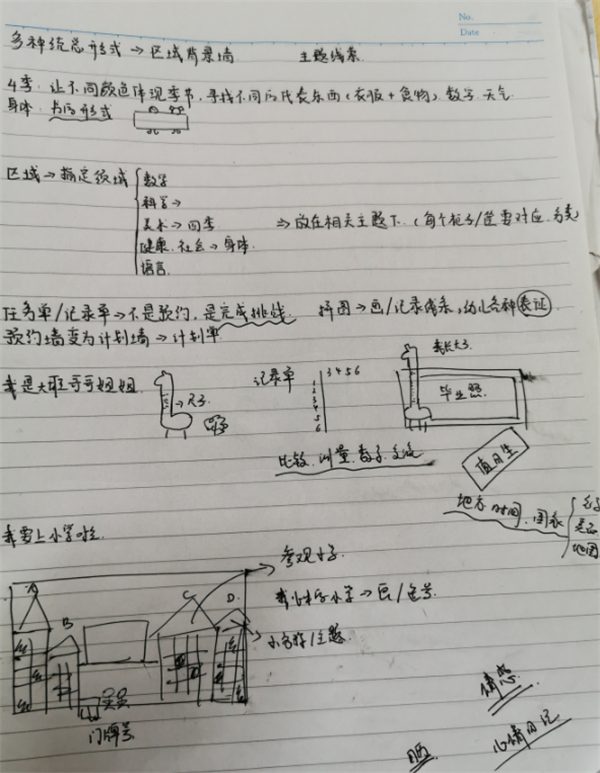 No.
Date
多种统总形式→区域背景墙 主题线索
4季:让不同颜色体现季节,寻找不同的代表东西(衣服+食物).数字.天气
身体:书的形式
区域→指定领域
数学
科学→
美术→四季
健康.社会→身体.
语言.
⇒放在相关主题下.(每个柜子/筐要对应
任务单/记录单→不是预约,是完成挑战 拼图→画/记录体系,幼儿各种表征
预约墙变为计划墙→计划单
我是大班哥哥姐姐.
→尺子
记录单
3456
1
2
3
4
5
6
我长大了
毕业照.
比较.测量.数字.
值日生
时间.国家
地图
我要上小学啦.
参观小学.
A
B
C
D.
小学→ /
门牌号
情感
心情日记